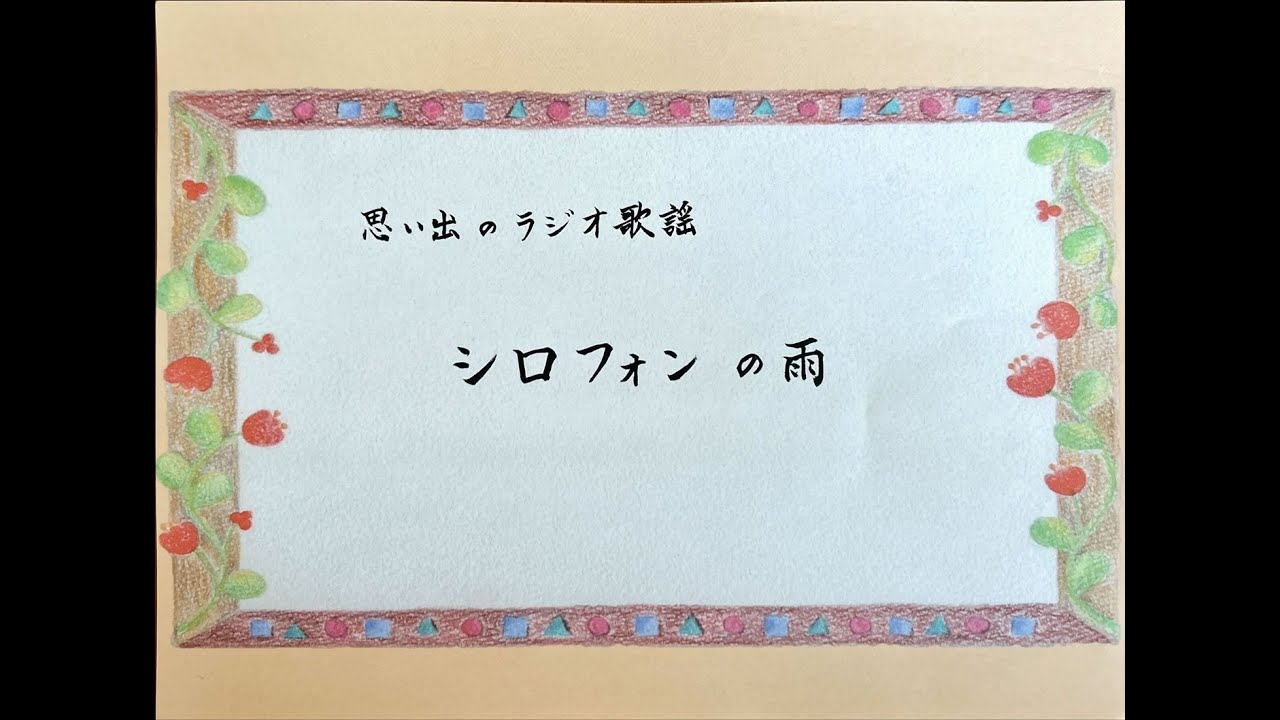 思い出のラジオ歌謡
シロフォンの雨